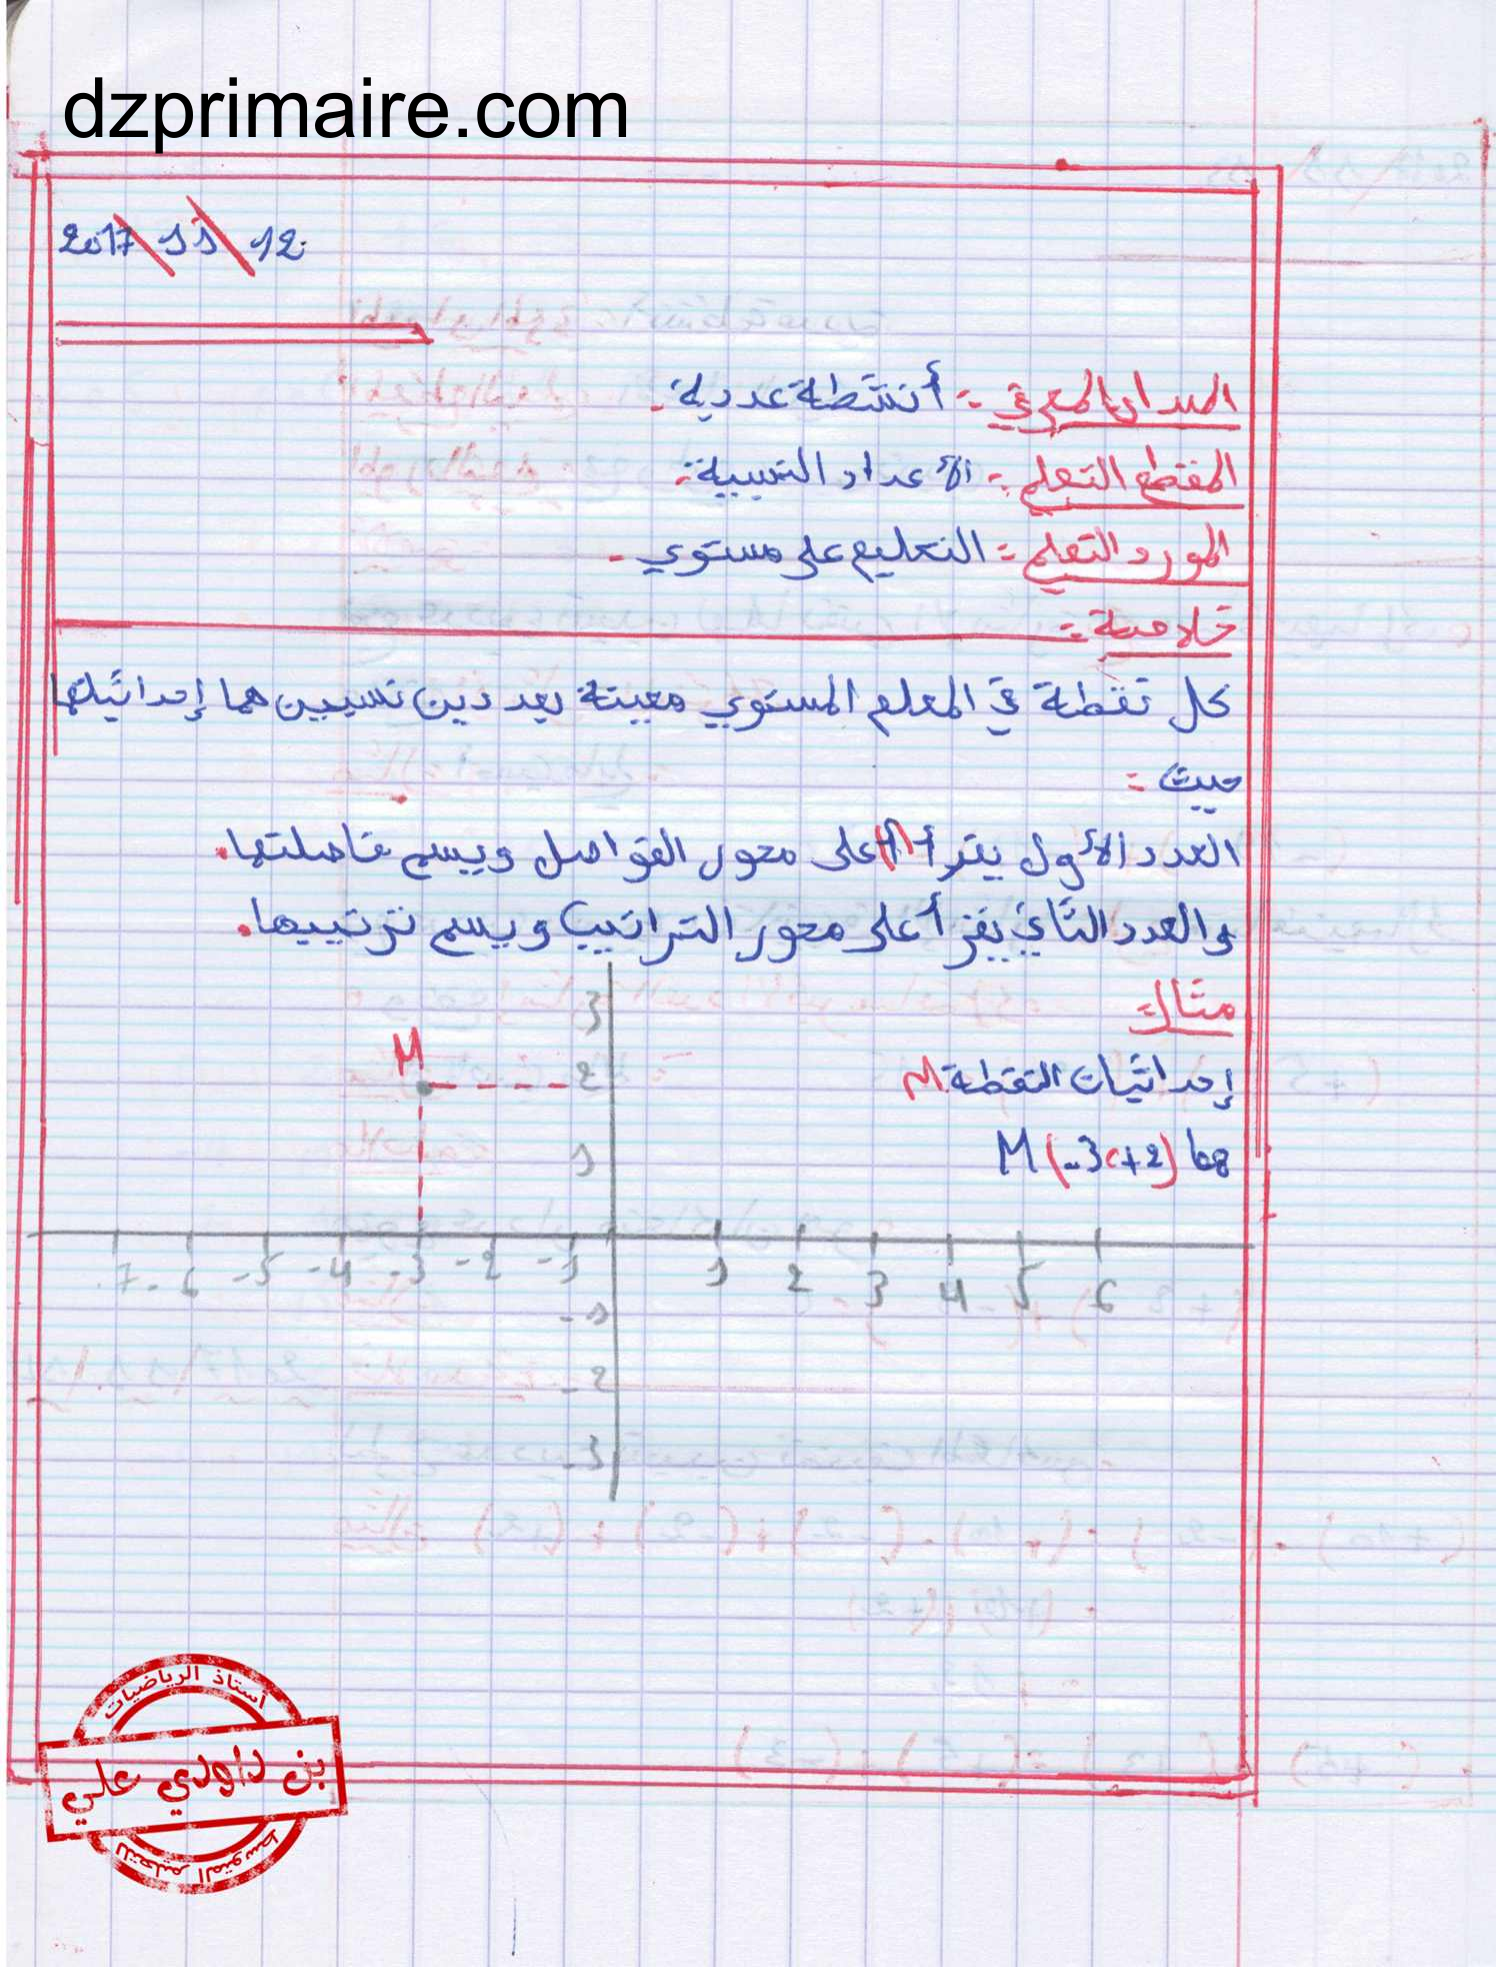 dzprimaire.com
2017 \ 11 \ 12
الميدان المعرفي :- أنشطة عددية .
المقطع التعلمي :- الأعداد النسبية .
المورد التعلمي :- التعليم على مستوي .
خلاصة :-
كل نقطة في المعلم المستوي معينة بعددين نسبيين هما إحداثياتها
حيث :
العدد الأول يقرأ على محور الفواصل ويسم فاصلتها .
والعدد الثاني يقرأ على محور التراتيب ويسم ترتيبها .
مثال :
إحداثيات النقطة M
هما M (-3 ، +2)
3
M
2
1
-7 -6 -5 -4 -3 -2 -1 1 2 3 4 5 6
-1
-2
-3
أستاذ الرياضيات
بن داودي علي
للتعليم المتوسط